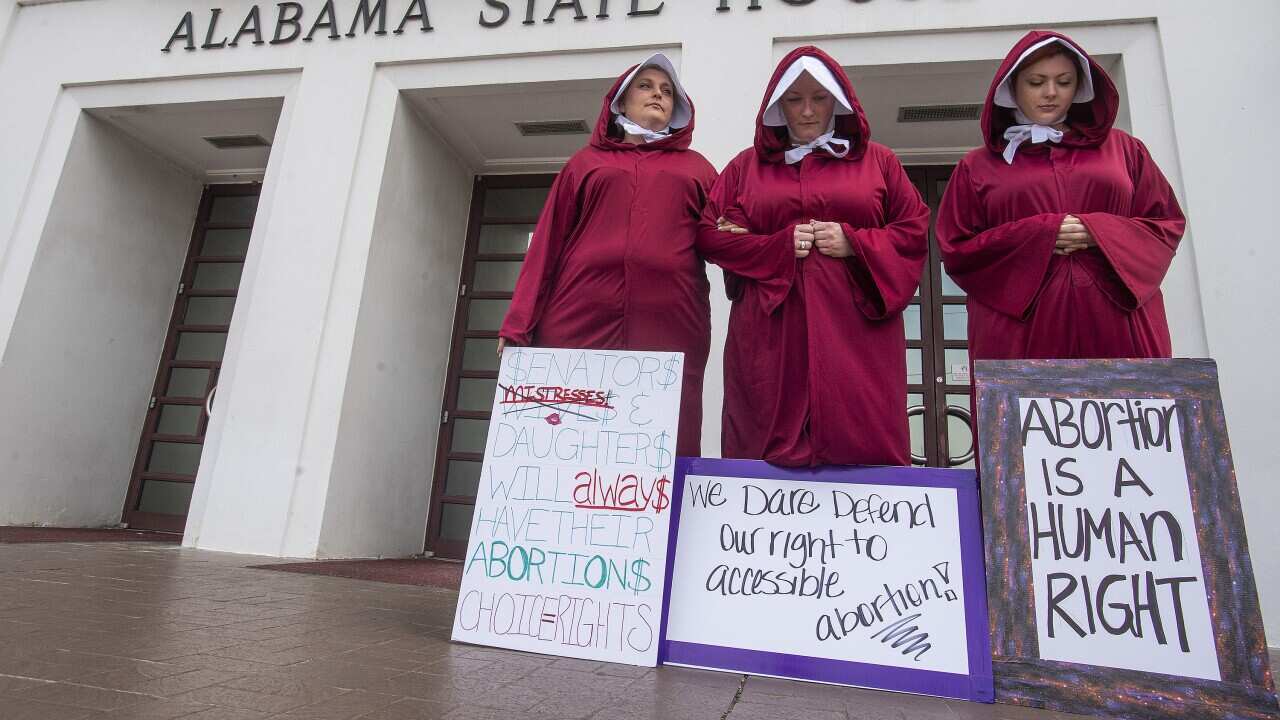 ALABAMA STATE HOUSE
$ENATOR$
MISTRESSES,
WIVE$ &
DAUGHTER$
WILL alway$
HAVE THEIR
ABORTION$
CHOICE=RIGHTS
We Dare Defend
our right to
accessible
abortion!
ABortion
IS A
HUMAN
RIGHT